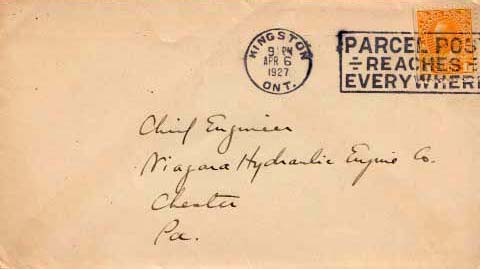 KINGSTON
9 PM
APR 6
1927
ONT.
PARCEL POS
÷ REACHES ÷
EVERYWHERE
Chief Engineer
Niagara Hydraulic Engine Co.
Chester
Pa.